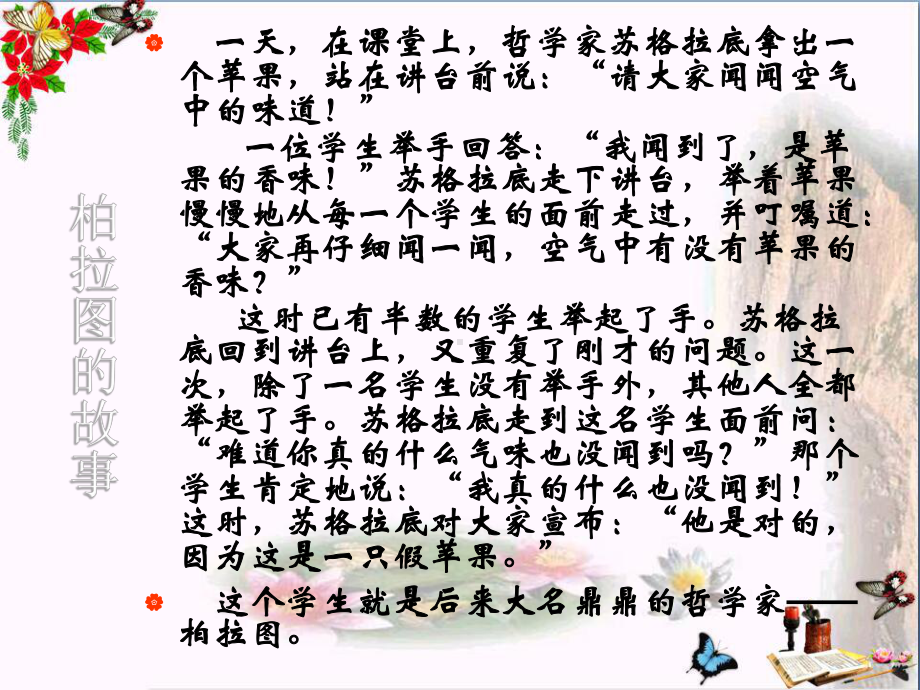 柏拉图的故事
一天，在课堂上，哲学家苏格拉底拿出一
个苹果，站在讲台前说：“请大家闻闻空气
中的味道！”
一位学生举手回答：“我闻到了，是苹
果的香味！”苏格拉底走下讲台，举着苹果
慢慢地从每一个学生的面前走过，并叮嘱道：
“大家再仔细闻一闻，空气中有没有苹果的
香味？”
这时已有半数的学生举起了手。苏格拉
底回到讲台上，又重复了刚才的问题。这一
次，除了一名学生没有举手外，其他人全都
举起了手。苏格拉底走到这名学生面前问：
“难道你真的什么气味也没闻到吗？”那个
学生肯定地说：“我真的什么也没闻到！”
这时，苏格拉底对大家宣布：“他是对的，
因为这是一只假苹果。”
这个学生就是后来大名鼎鼎的哲学家——
柏拉图。